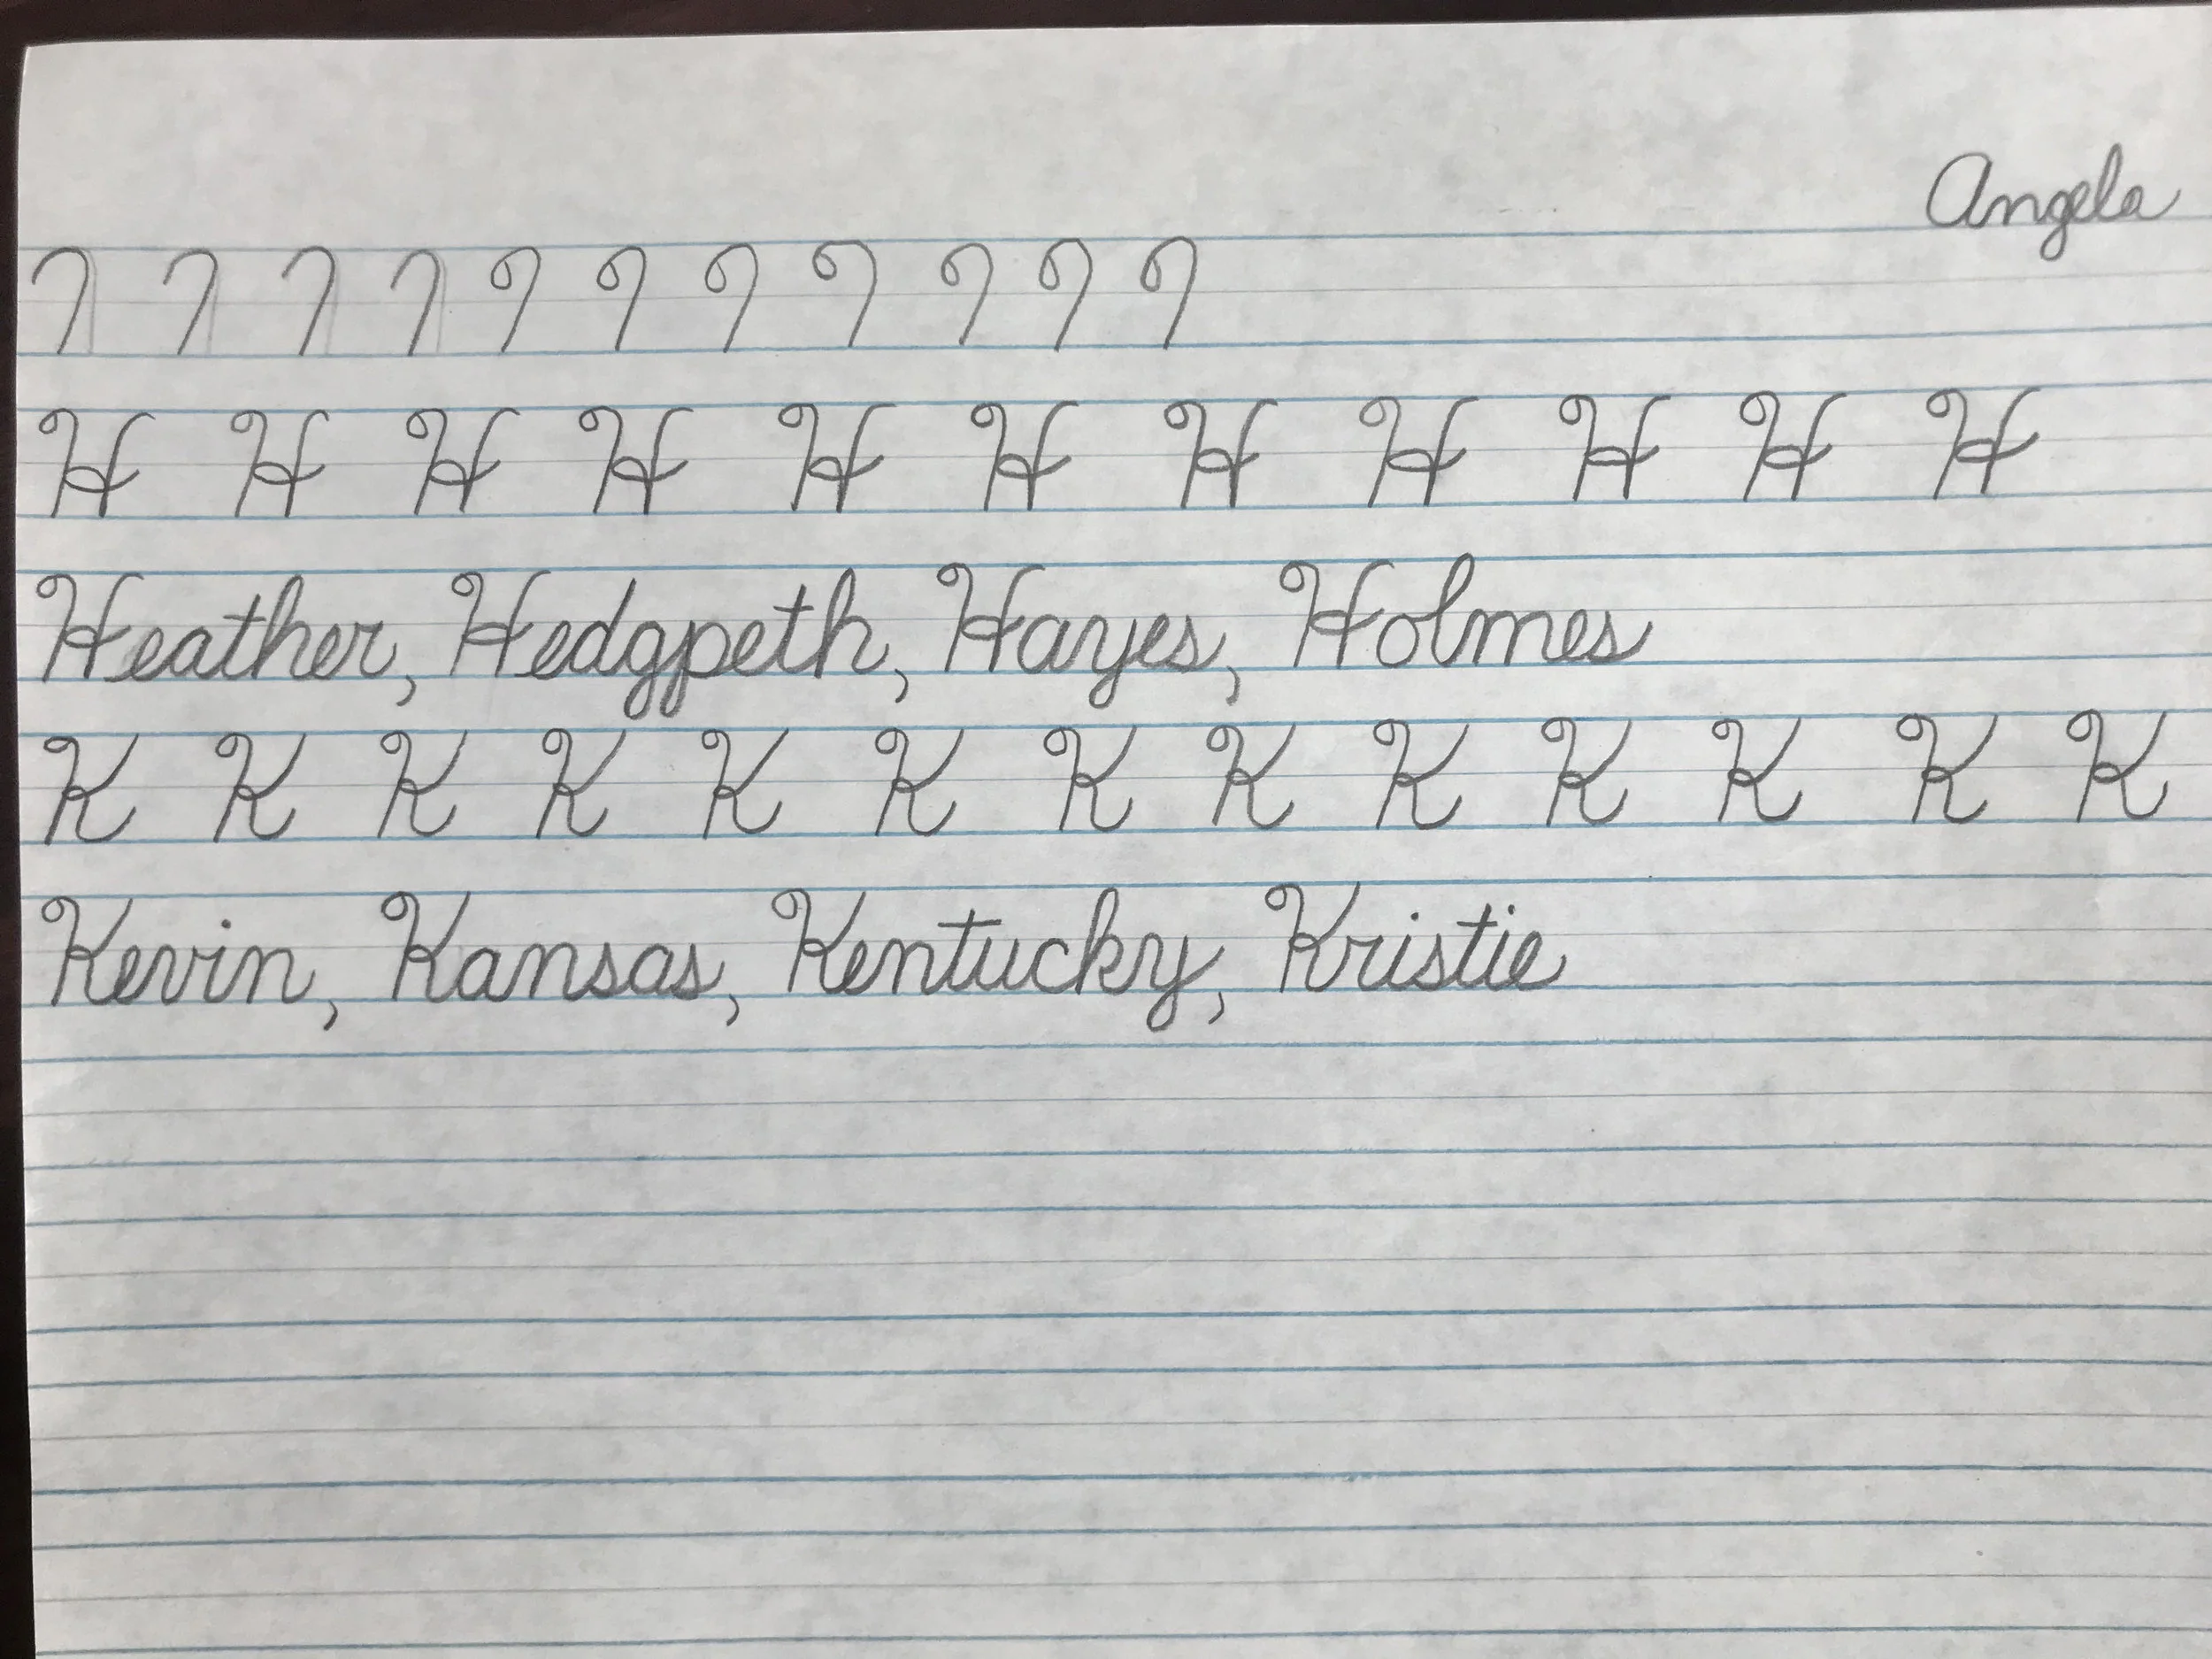 Angela
H H H H H H H H H H H
Heather, Hedgpeth, Hayes, Holmes
K K K K K K K K K K K K K
Kevin, Kansas, Kentucky, Kristie